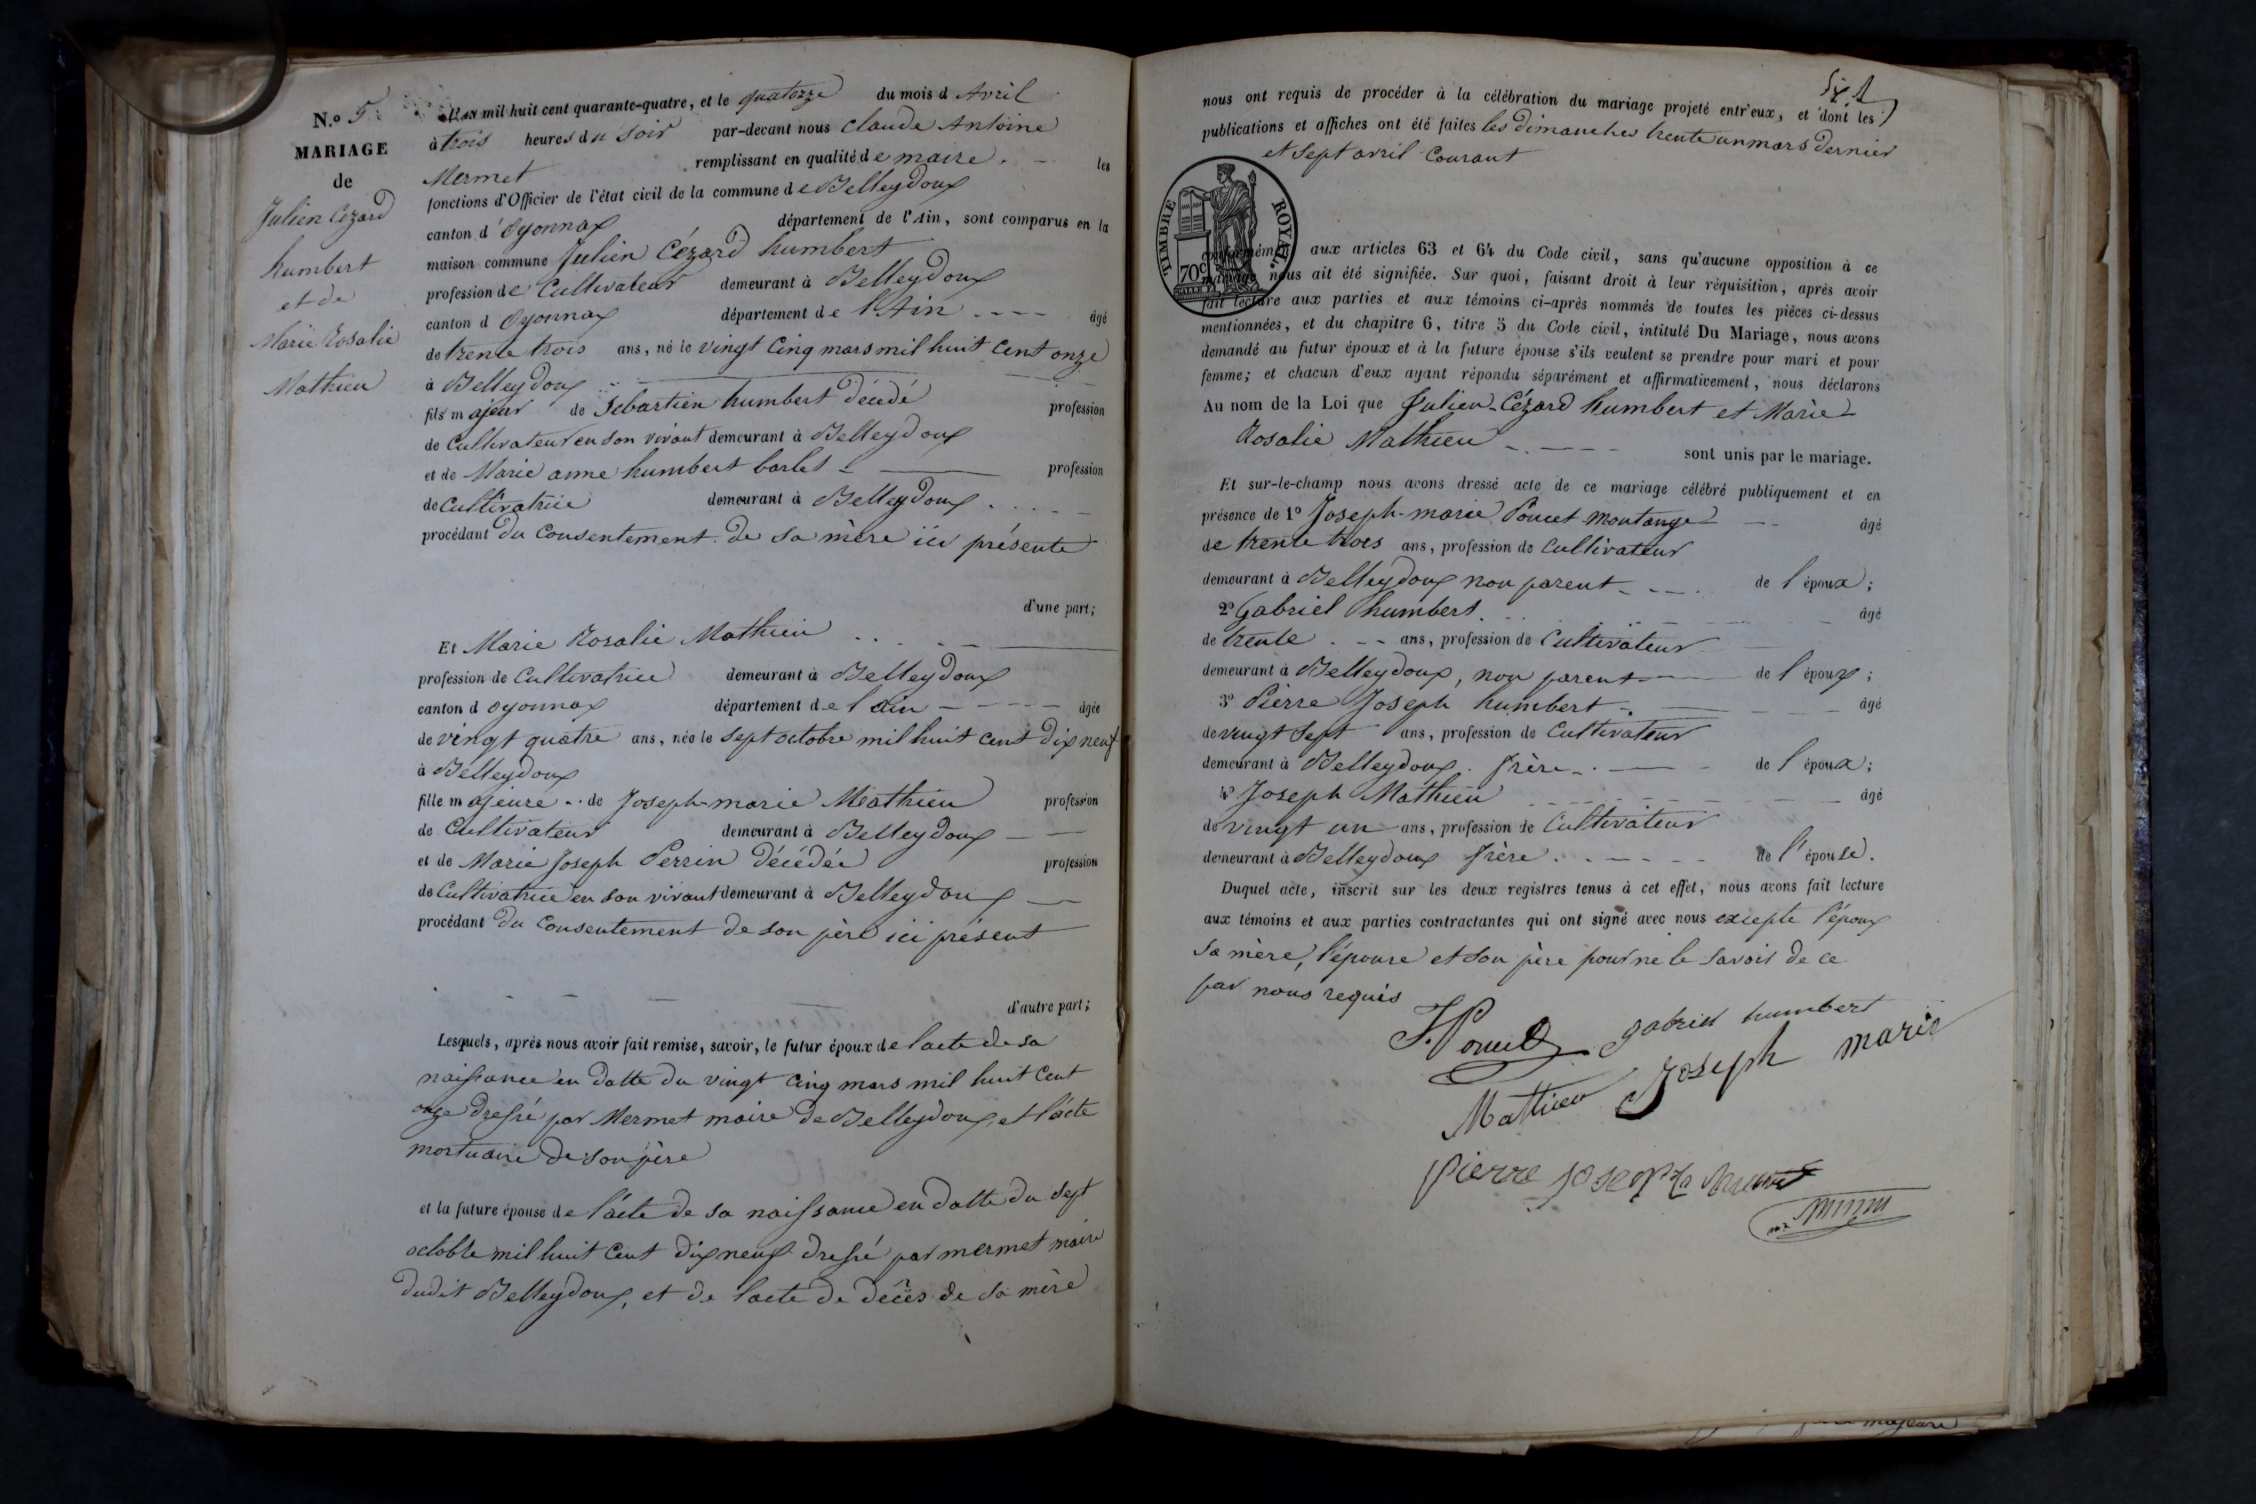 N.o 5
MARIAGE
de
Julien Cézard
humbert
et de
Marie Rosalie
Mathieu
L'an mil huit cent quarante-quatre, et le quatorze du mois d Avril
à trois heures du soir par-devant nous Claude Antoine
Mermet remplissant en qualité de maire . - les
fonctions d'Officier de l'état civil de la commune de Belleydoux
canton d'Oyonnax département de l'Ain, sont comparus en la
maison commune Julien Cézard humbert
profession de Cultivateur demeurant à Belleydoux
canton d Oyonnax département de l'Ain - - - - âgé
de trente trois ans, né le vingt cinq mars mil huit cent onze
à Belleydoux
fils majeur de Sebastien humbert décédé profession
de Cultivateur en son vivant demeurant à Belleydoux
et de Marie anne humbert barlet - profession
de Cultivatrice demeurant à Belleydoux
procédant du consentement de sa mère ici présente
d'une part;
Et Marie Rosalie Mathieu
profession de Cultivatrice demeurant à Belleydoux
canton d oyonnax département de l ain - - - - âgée
de vingt quatre ans, née le sept octobre mil huit cent dix neuf
à Belleydoux
fille majeure de Joseph-marie Mathieu profession
de Cultivateur demeurant à Belleydoux
et de Marie Joseph Perrin décédée profession
de Cultivatrice en son vivant demeurant à Belleydoux
procédant du consentement de son père ici présent
d'autre part;
Lesquels, après nous avoir fait remise, savoir, le futur époux de l'acte de sa
naissance en datte du vingt cinq mars mil huit cent
onze dressé par Mermet maire de Belleydoux, et l'acte
mortuaire de son père
et la future épouse de l'acte de sa naissance en datte du sept
octobre mil huit cent dix neuf dressé par mermet maire
dudit Belleydoux, et de l'acte de décès de sa mère
nous ont requis de procéder à la célébration du mariage projeté entr'eux, et dont les
publications et affiches ont été faites les dimanches trente un mars dernier
et sept avril courant
TIMBRE ROYAL.
70c
conformément aux articles 63 et 64 du Code civil, sans qu'aucune opposition à ce
mariage nous ait été signifiée. Sur quoi, faisant droit à leur réquisition, après avoir
fait lecture aux parties et aux témoins ci-après nommés de toutes les pièces ci-dessus
mentionnées, et du chapitre 6, titre 5 du Code civil, intitulé Du Mariage, nous avons
demandé au futur époux et à la future épouse s'ils veulent se prendre pour mari et pour
femme; et chacun d'eux ayant répondu séparément et affirmativement, nous déclarons
Au nom de la Loi que Julien-Cézard humbert et Marie
Rosalie Mathieu
sont unis par le mariage.
Et sur-le-champ nous avons dressé acte de ce mariage célébré publiquement et en
présence de 1º Joseph-marie Poncet Montange âgé
de trente trois ans, profession de Cultivateur
demeurant à Belleydoux non parent de l époux;
2º Gabriel humbert âgé
de trente ans, profession de Cultivateur
demeurant à Belleydoux, non parent de l époux;
3º Pierre Joseph humbert âgé
de vingt sept ans, profession de Cultivateur
demeurant à Belleydoux frère de l époux;
4º Joseph Mathieu âgé
de vingt un ans, profession de Cultivateur
demeurant à Belleydoux frère de l'épouse.
Duquel acte, inscrit sur les deux registres tenus à cet effet, nous avons fait lecture
aux témoins et aux parties contractantes qui ont signé avec nous excepte l'époux
sa mère, l'épouse et son père pour ne le savoir de ce
par nous requis
J. Poncet gabriel humbert
Mathieu Joseph marie
pierre joseph